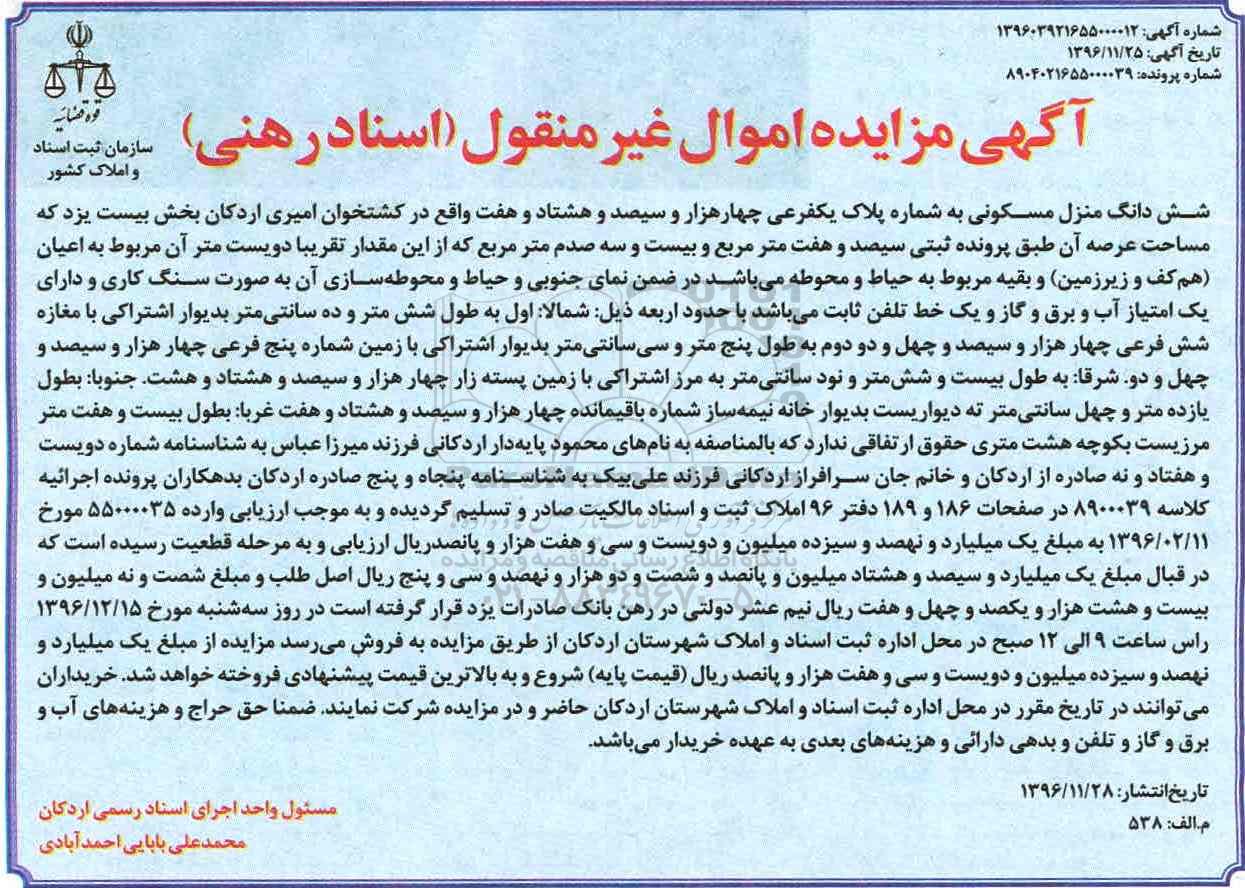 شماره آگهی: ۱۳۹۶۰۳۹۲۱۶۵۵۰۰۰۰۱۲
تاریخ آگهی: ۱۳۹۶/۱۱/۲۵
شماره پرونده: ۸۹۰۴۰۲۱۶۵۵۰۰۰۰۳۹
قوه قضائیه
سازمان ثبت اسناد
و املاک کشور
آگهی مزایده اموال غیر منقول (اسناد رهنی)
شش دانگ منزل مسکونی به شماره پلاک یکفرعی چهارهزار و سیصد و هشتاد و هفت واقع در کشتخوان امیری اردکان بخش بیست یزد که
مساحت عرصه آن طبق پرونده ثبتی سیصد و هفت متر مربع و بیست و سه صدم متر مربع که از این مقدار تقریبا دویست متر آن مربوط به اعیان
(هم‌کف و زیرزمین) و بقیه مربوط به حیاط و محوطه می‌باشد در ضمن نمای جنوبی و حیاط و محوطه‌سازی آن به صورت سنگ کاری و دارای
یک امتیاز آب و برق و گاز و یک خط تلفن ثابت می‌باشد با حدود اربعه ذیل: شمالا: اول به طول شش متر و ده سانتی‌متر بدیوار اشتراکی با مغازه
شش فرعی چهار هزار و سیصد و چهل و دو دوم به طول پنج متر و سی‌سانتی‌متر بدیوار اشتراکی با زمین شماره پنج فرعی چهار هزار و سیصد و
چهل و دو. شرقا: به طول بیست و شش‌متر و نود سانتی‌متر به مرز اشتراکی با زمین پسته زار چهار هزار و سیصد و هشتاد و هشت. جنوبا: بطول
یازده متر و چهل سانتی‌متر ته دیواریست بدیوار خانه نیمه‌ساز شماره باقیمانده چهار هزار و سیصد و هشتاد و هفت غربا: بطول بیست و هفت متر
مرزیست بکوچه هشت متری حقوق ارتفاقی ندارد که بالمناصفه به نام‌های محمود پایه‌دار اردکانی فرزند میرزا عباس به شناسنامه شماره دویست
و هفتاد و نه صادره از اردکان و خانم جان سرافراز اردکانی فرزند علی‌بیک به شناسنامه پنجاه و پنج صادره اردکان بدهکاران پرونده اجرائیه
کلاسه ۸۹۰۰۰۳۹ در صفحات ۱۸۶ و ۱۸۹ دفتر ۹۶ املاک ثبت و اسناد مالکیت صادر و تسلیم گردیده و به موجب ارزیابی وارده ۵۵۰۰۰۰۳۵ مورخ
۱۳۹۶/۰۲/۱۱ به مبلغ یک میلیارد و نهصد و سیزده میلیون و دویست و سی و هفت هزار و پانصدریال ارزیابی و به مرحله قطعیت رسیده است که
در قبال مبلغ یک میلیارد و سیصد و هشتاد میلیون و پانصد و شصت و دو هزار و نهصد و سی و پنج ریال اصل طلب و مبلغ شصت و نه میلیون و
بیست و هشت هزار و یکصد و چهل و هفت ریال نیم عشر دولتی در رهن بانک صادرات یزد قرار گرفته است در روز سه‌شنبه مورخ ۱۳۹۶/۱۲/۱۵
راس ساعت ۹ الی ۱۲ صبح در محل اداره ثبت اسناد و املاک شهرستان اردکان از طریق مزایده به فروش می‌رسد مزایده از مبلغ یک میلیارد و
نهصد و سیزده میلیون و دویست و سی و هفت هزار و پانصد ریال (قیمت پایه) شروع و به بالاترین قیمت پیشنهادی فروخته خواهد شد. خریداران
می‌توانند در تاریخ مقرر در محل اداره ثبت اسناد و املاک شهرستان اردکان حاضر و در مزایده شرکت نمایند. ضمنا حق حراج و هزینه‌های آب و
برق و گاز و تلفن و بدهی دارائی و هزینه‌های بعدی به عهده خریدار می‌باشد.
تاریخ‌انتشار: ۱۳۹۶/۱۱/۲۸
م.الف: ۵۳۸
مسئول واحد اجرای اسناد رسمی اردکان
محمدعلی بابایی احمدآبادی
پایگاه اطلاع رسانی مناقصه و مزایده
۰۲۱-۸۸۳۴۹۶۷۰-۵